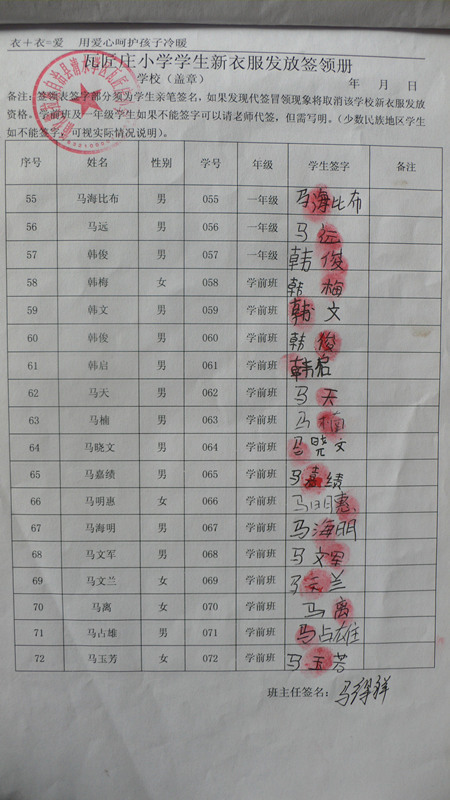 衣＋衣=爱 用爱心呵护孩子冷暖
瓦匠庄小学学生新衣服发放签领册
学校（盖章） 年 月 日
备注：签领表签字部分须为学生亲笔签名，如果发现代签冒领现象将取消该学校新衣服发放
资格。学前班及一年级学生如果不能签字可以请老师代签，但需写明。（少数民族地区学生
如不能签字，可视实际情况说明）。
序号 姓名 性别 学号 年级 学生签字 备注
55 马海比布 男 055 一年级 马海比布
56 马远 男 056 一年级 马远
57 韩俊 男 057 一年级 韩俊
58 韩梅 女 058 学前班 韩梅
59 韩文 男 059 学前班 韩文
60 韩俊 男 060 学前班 韩俊
61 韩启 男 061 学前班 韩启
62 马天 男 062 学前班 马天
63 马楠 男 063 学前班 马楠
64 马晓文 男 064 学前班 马晓文
65 马嘉绩 男 065 学前班 马嘉绩
66 马明惠 女 066 学前班 马明惠
67 马海明 男 067 学前班 马海明
68 马文军 男 068 学前班 马文军
69 马文兰 女 069 学前班 马文兰
70 马离 女 070 学前班 马离
71 马占雄 男 071 学前班 马占雄
72 马玉芳 女 072 学前班 马玉芳
班主任签名：马得祥